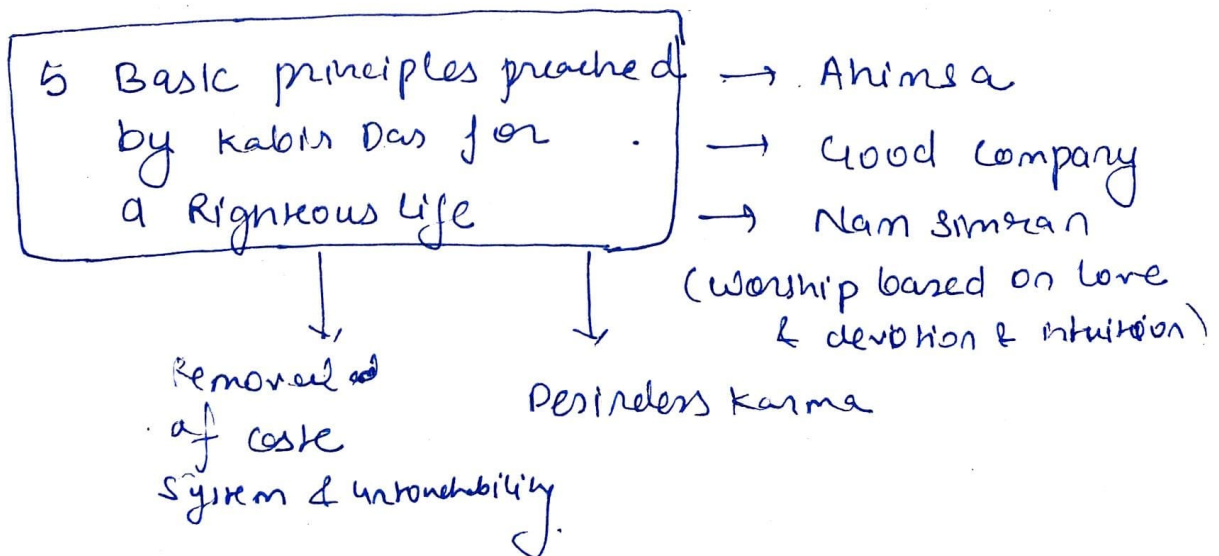 5 Basic principles preached
by Kabir Das for
a Righteous life
→ Ahimsa
→ Good company
→ Nam simran
(worship based on love
& devotion & intuition)
Removal
of caste
system & untouchability.
Desireless Karma